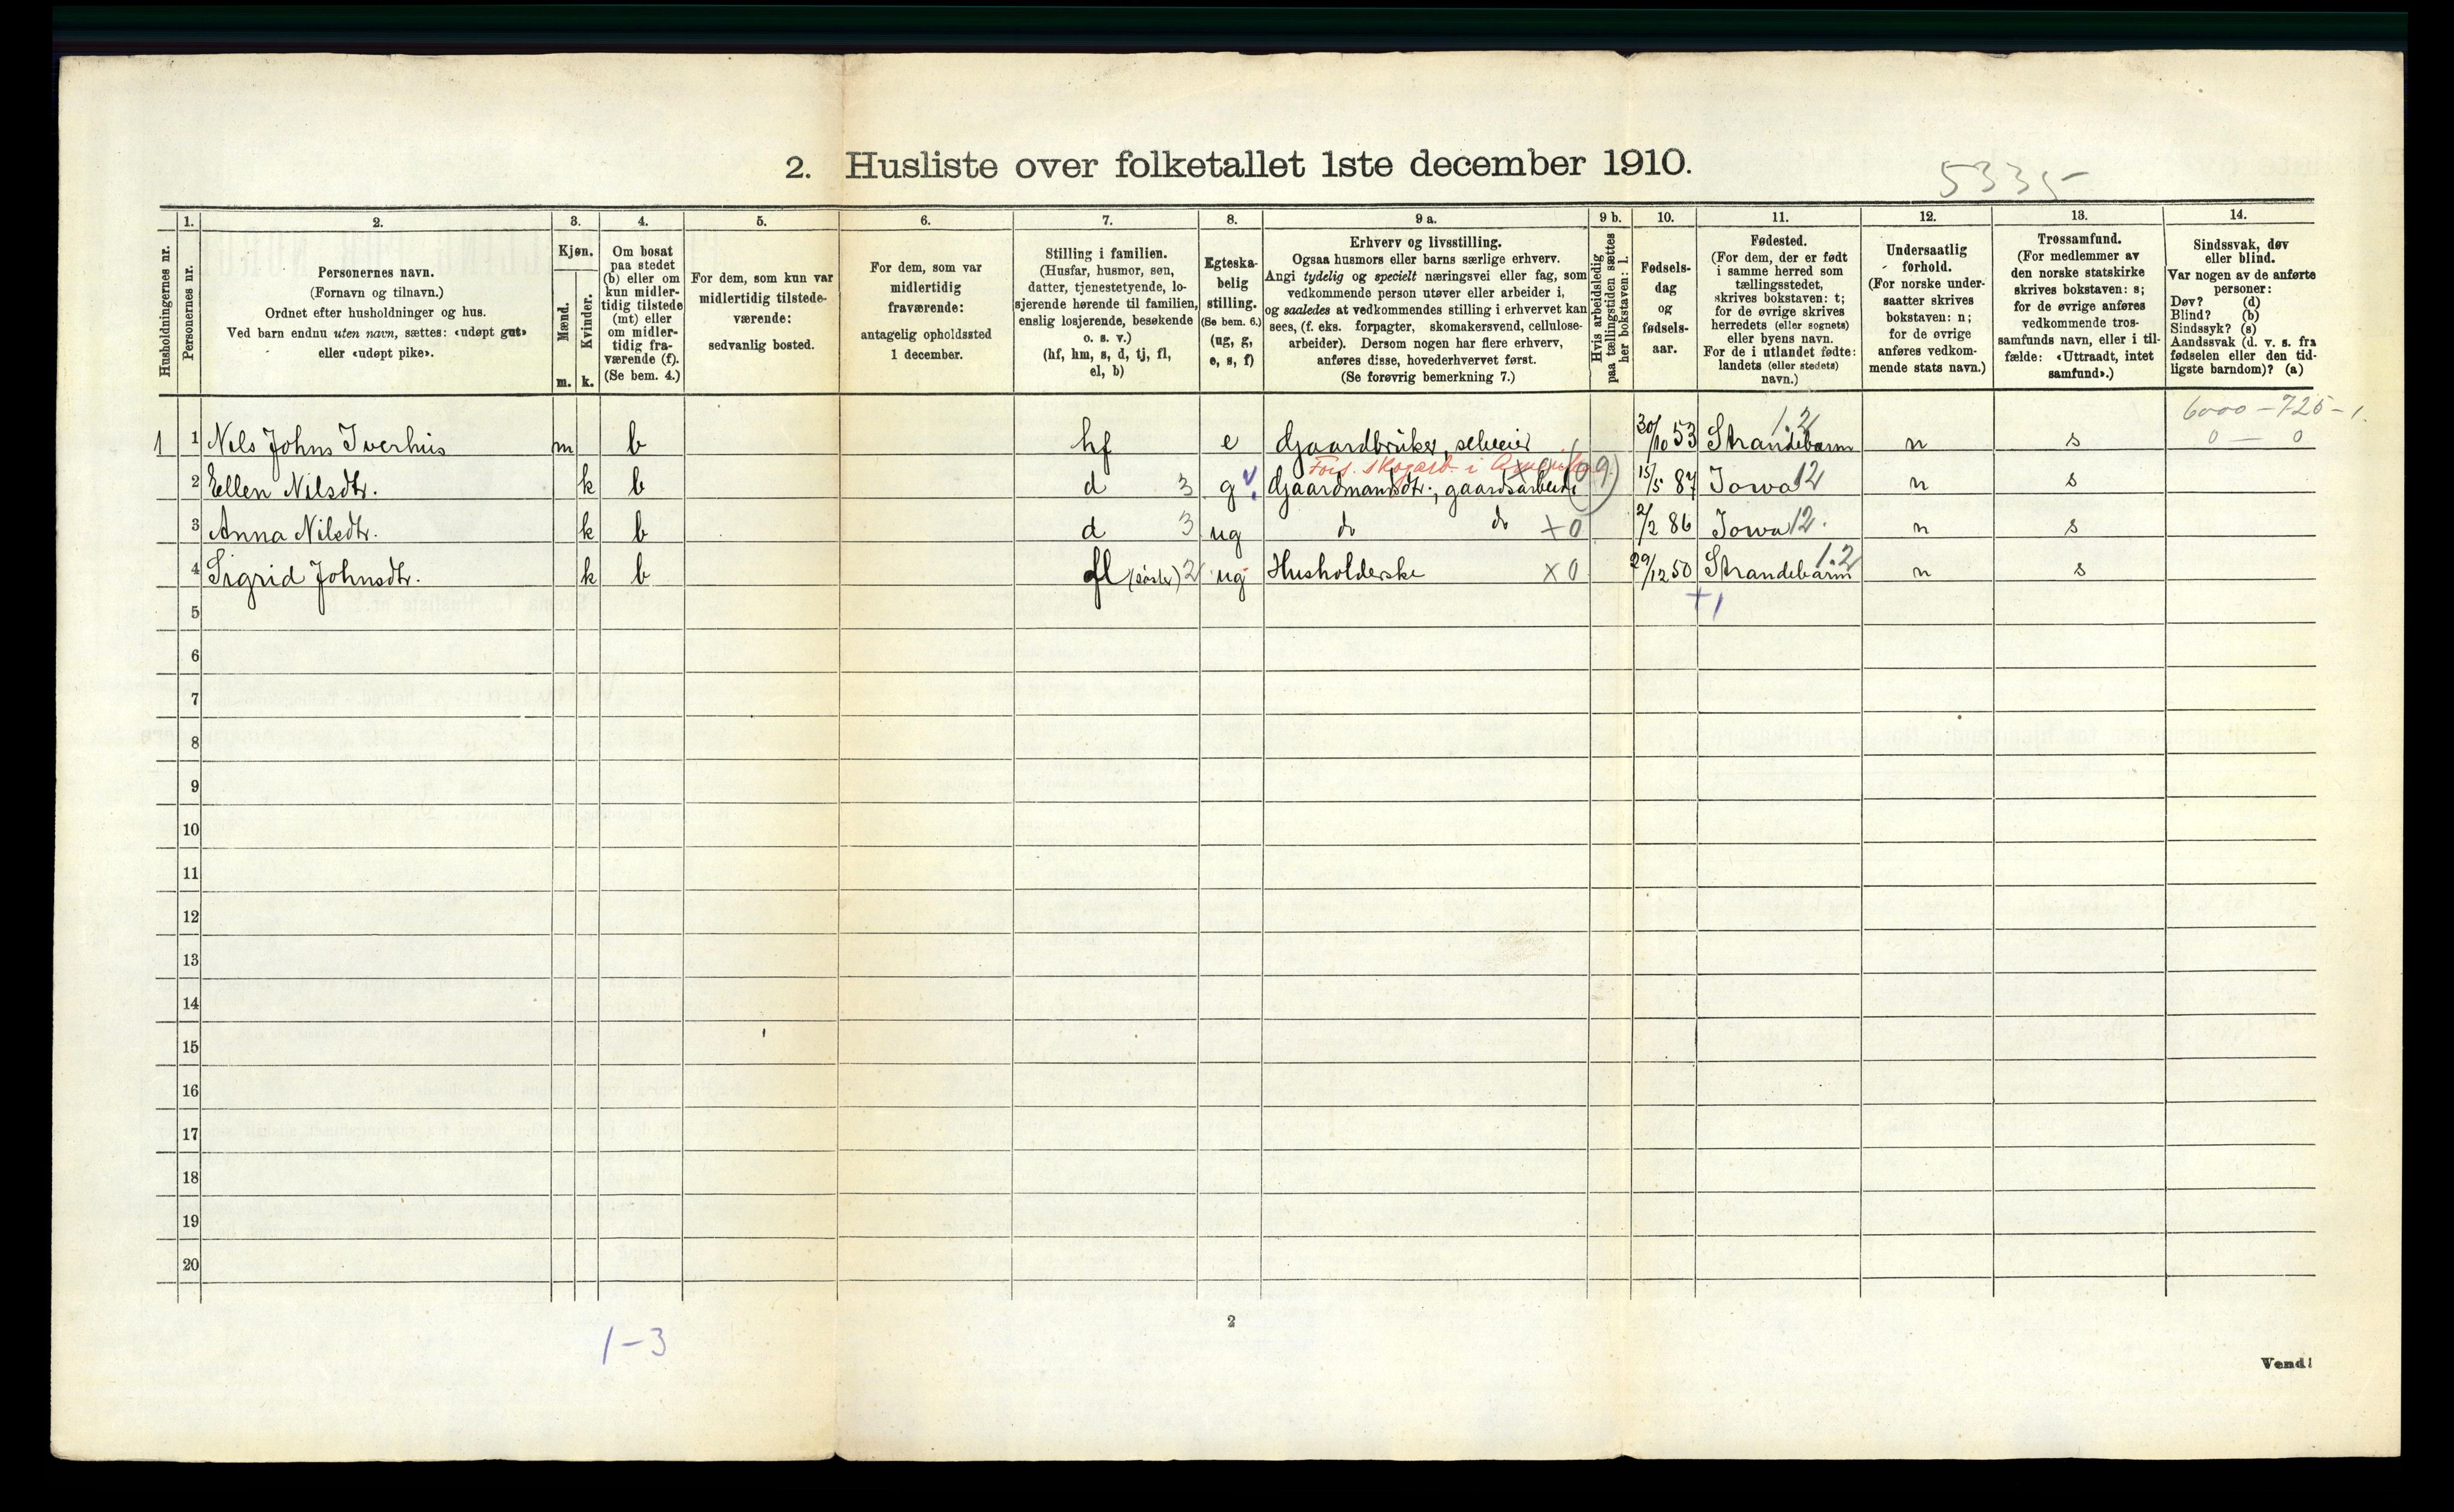 2. Husliste over folketallet 1ste december 1910.
5335
Husholdningernes nr.
1.
Personernes nr.
2.
Personernes navn.
(Fornavn og tilnavn.)
Ordnet efter husholdninger og hus.
Ved barn endnu uten navn, sættes: «udøpt gut»
eller «udøpt pike».
3.
Kjøn.
Mænd.
Kvinder.
m. k.
4.
Om bosat
paa stedet
(b) eller om
kun midler-
tidig tilstede
(mt) eller
om midler-
tidig fra-
værende (f).
(Se bem. 4.)
5.
For dem, som kun var
midlertidig tilstede-
værende:
sedvanlig bosted.
6.
For dem, som var
midlertidig
fraværende:
antagelig opholdssted
1 december.
7.
Stilling i familien.
(Husfar, husmor, søn,
datter, tjenestetyende, lo-
sjerende hørende til familien,
enslig losjerende, besøkende
o. s. v.)
(hf, hm, s, d, tj, fl,
el, b)
8.
Egteska-
belig
stilling.
(Se bem. 6.)
(ug, g,
e, s, f)
9 a.
Erhverv og livsstilling.
Ogsaa husmors eller barns særlige erhverv.
Angi tydelig og specielt næringsvei eller fag, som
vedkommende person utøver eller arbeider i,
og saaledes at vedkommendes stilling i erhvervet kan
sees, (f. eks. forpagter, skomakersvend, cellulose-
arbeider). Dersom nogen har flere erhverv,
anføres disse, hovederhvervet først.
(Se forøvrig bemerkning 7.)
9 b.
Hvis arbeidsledig
paa tællingstiden sættes
her bokstaven: l.
10.
Fødsels-
dag
og
fødsels-
aar.
11.
Fødested.
(For dem, der er født
i samme herred som
tællingsstedet,
skrives bokstaven: t;
for de øvrige skrives
herredets (eller sognets)
eller byens navn.
For de i utlandet fødte:
landets (eller stedets)
navn.)
12.
Undersaatlig
forhold.
(For norske under-
saatter skrives
bokstaven: n;
for de øvrige
anføres vedkom-
mende stats navn.)
13.
Trossamfund.
(For medlemmer av
den norske statskirke
skrives bokstaven: s;
for de øvrige anføres
vedkommende tros-
samfunds navn, eller i til-
fælde: «Uttraadt, intet
samfund».)
14.
Sindssvak, døv
eller blind.
Var nogen av de anførte
personer:
Døv? (d)
Blind? (b)
Sindssyk? (s)
Aandssvak (d. v. s. fra
fødselen eller den tid-
ligste barndom)? (a)
6000 – 725 – 1.
1 1 Nils Johns Iverhus m b hf e Gaardbruker, selveier 30/10 53 Strandebarm 1.2 n s 0 — 0
Fors. skogarb. i Amerika
2 Ellen Nilsdtr. k b d 3 g Gaardmandsdtr., gaardsarbeide 15/5 87 Iowa 12 n s
3 Anna Nilsdtr. k b d 3 ug do do x 0 2/2 86 Iowa 12. n s
4 Sigrid Johnsdtr. k b fl (søster) 2 ug Husholderske x 0 29/12 50 Strandebarm 1.2 n s
+1
5
6
7
8
9
10
11
12
13
14
15
16
17
18
19
20
1–3
2
Vend!